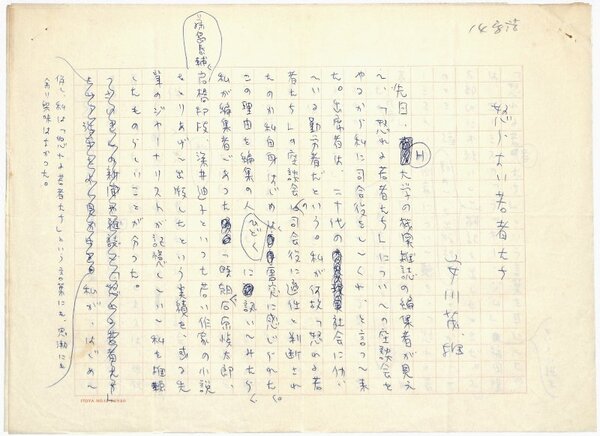 怒らない若者たち
安川茂雄
先日、H大学の機関雑誌の編集者が見え
て、「怒れる若者たち」についての座談会を
やるから私に司会役をしてくれ、と言って来
た。出席者は、二十代の社会に働い
ている勤労者だという。私が何故「怒れる若
者たち」の座談会の司会役に適性と判断され
たのか私自身はじめはひどく奇異に感じられた。
この理由を編集の人に訊いてみたら、
私が編集者であった一時期石原慎太郎、
深井迪子といった若い作家の小説
をとりあげて出版したという実績を、或る先
輩のジャーナリストが記憶していて私を推薦
したものらしいことが分った。
私が、はじめて
但し、私は「怒れる若者たち」という言葉にも、思潮にも
あまり興味はなかった。